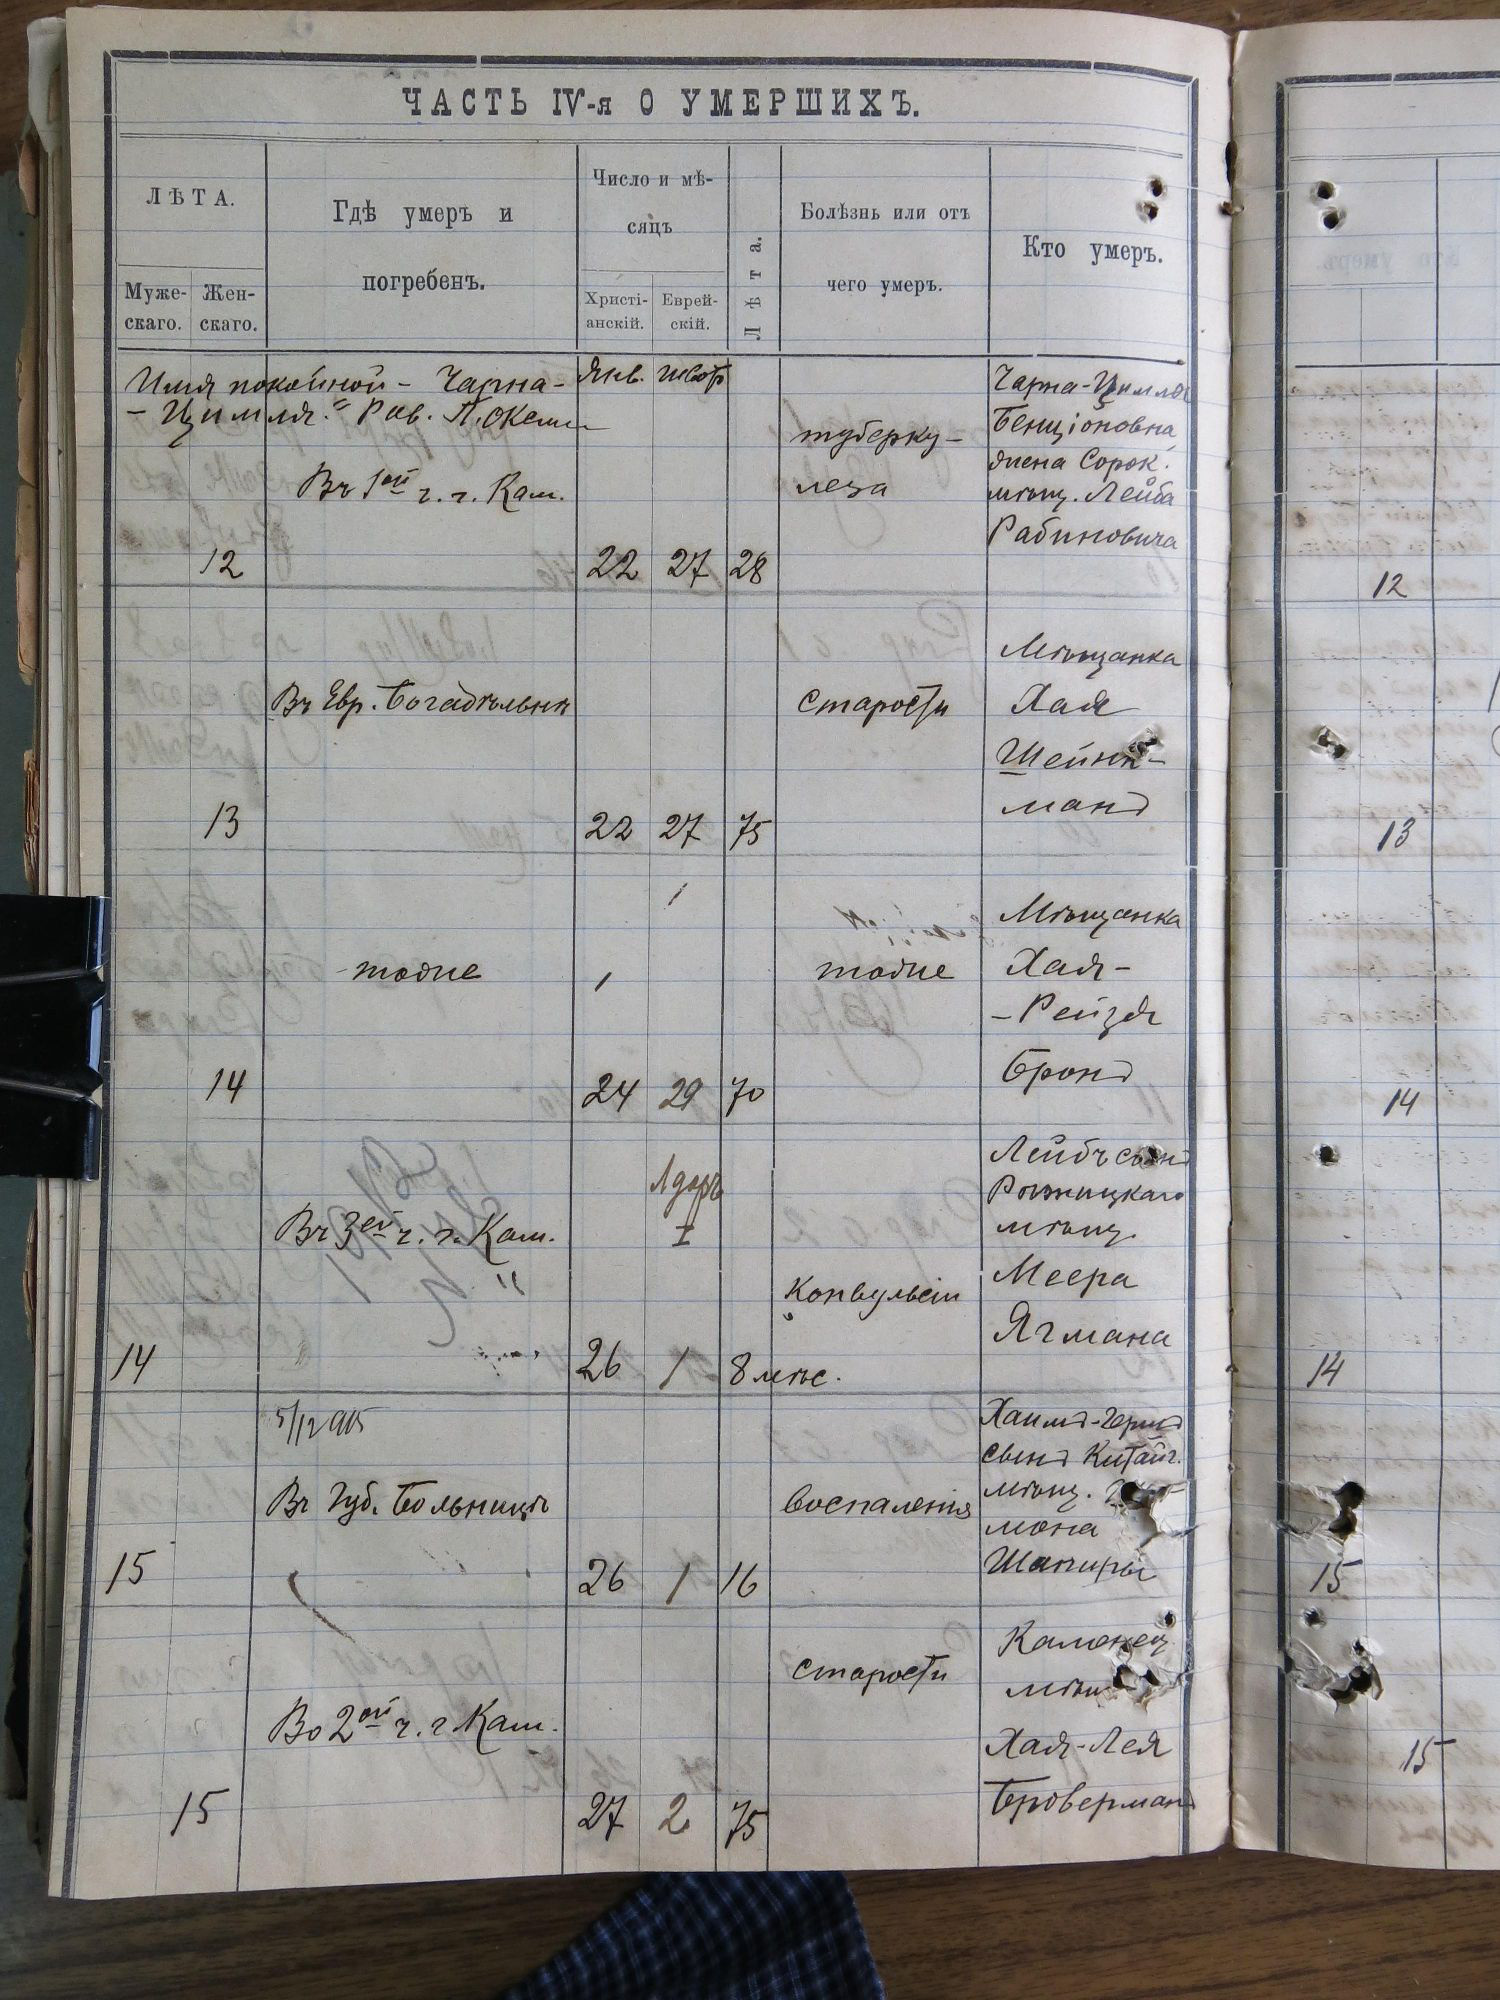 ЧАСТЬ IV-я О УМЕРШИХЪ.
ЛѢТА.
Муже-
скаго.
Жен-
скаго.
Гдѣ умеръ и
погребенъ.
Число и мѣ-
сяцъ
Христі-
анскій.
Еврей-
скій.
Лѣта.
Болѣзнь или отъ
чего умеръ.
Кто умеръ.
Имя покойной - Чарна-
- Цимля. Рав.
Янв.
Въ 1ой ч. г. Кам.
12
22
27
28
туберку-
леза
Чарна-Цимля
Бенціоновна
жена Сорок.
мѣщ. Лейба
Рабиновича
12
Въ Евр. Богадѣльнѣ
13
22
27
75
старости
Мѣщанка
Хая
Шейнк-
манъ
13
тоже
14
24
29
70
тоже
Мѣщанка
Хая-
- Рейзя
Бронъ
14
Въ 3ей ч. г. Кам.
Адаръ
I
14
26
1
8 мѣс.
Конвульсіи
Лейбъ сынъ
мѣщ.
Меера
Ягмана
14
5/12 915
Въ Губ. Больницѣ
15
26
1
16
воспаленія
Хаимъ-Гершъ
сынъ Китайг.
мѣщ.
мона
Шапиры
15
Во 2ой ч. г. Кам.
15
27
2
75
старости
Каменец.
Хая-Лея
Броверманъ
15